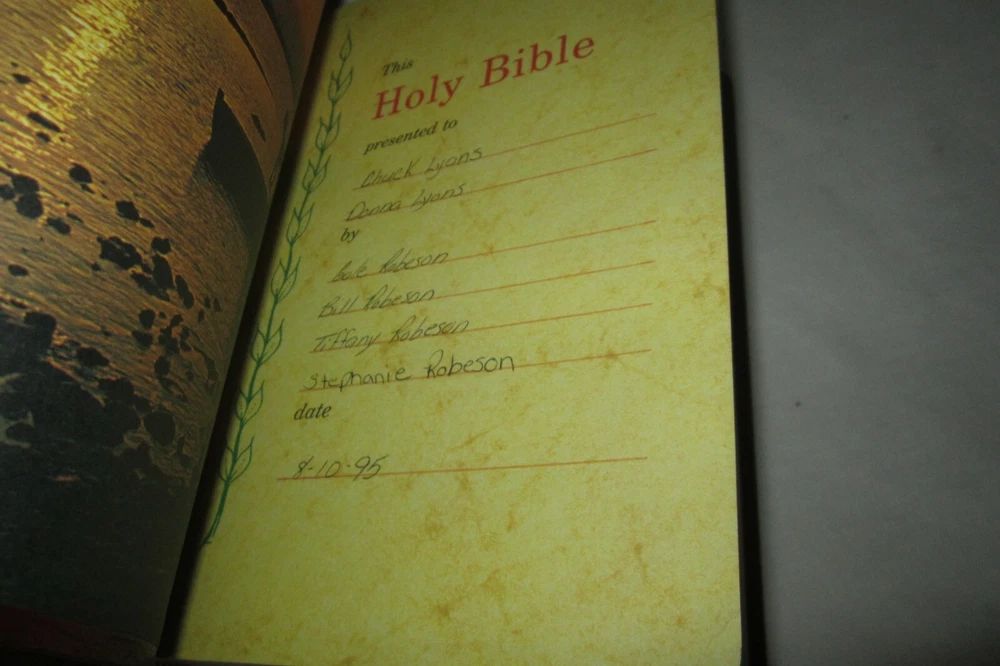 This
Holy Bible
presented to
Chuck Lyons
Donna Lyons
by
Robeson
Bill Robeson
Tiffany Robeson
Stephanie Robeson
date
8-10-95